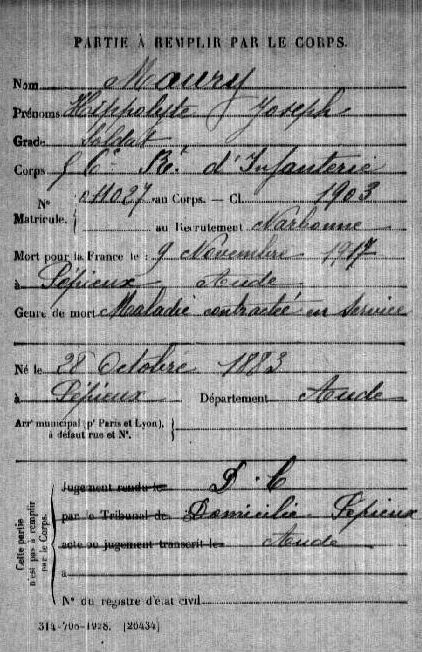 PARTIE À REMPLIR PAR LE CORPS.
Nom Maury
Prénoms Hippolyte Joseph
Grade Soldat
Corps Cie Rt d'Infanterie
N° Matricule. 011027 au Corps. — Cl. 1903
au Recrutement Narbonne
Mort pour la France le : 9 Novembre 1917
à Pépieux Aude
Genre de mort Maladie contractée en service
Né le 28 Octobre 1883
à Pépieux Département Aude
Arrt municipal (pr Paris et Lyon),
à défaut rue et N°.
Cette partie n'est pas à remplir par le Corps.
Jugement rendu le D. C
par le Tribunal de Domicilié Pépieux
acte ou jugement transcrit le Aude
à
N° du registre d'état civil
314-708-1928. [26434]